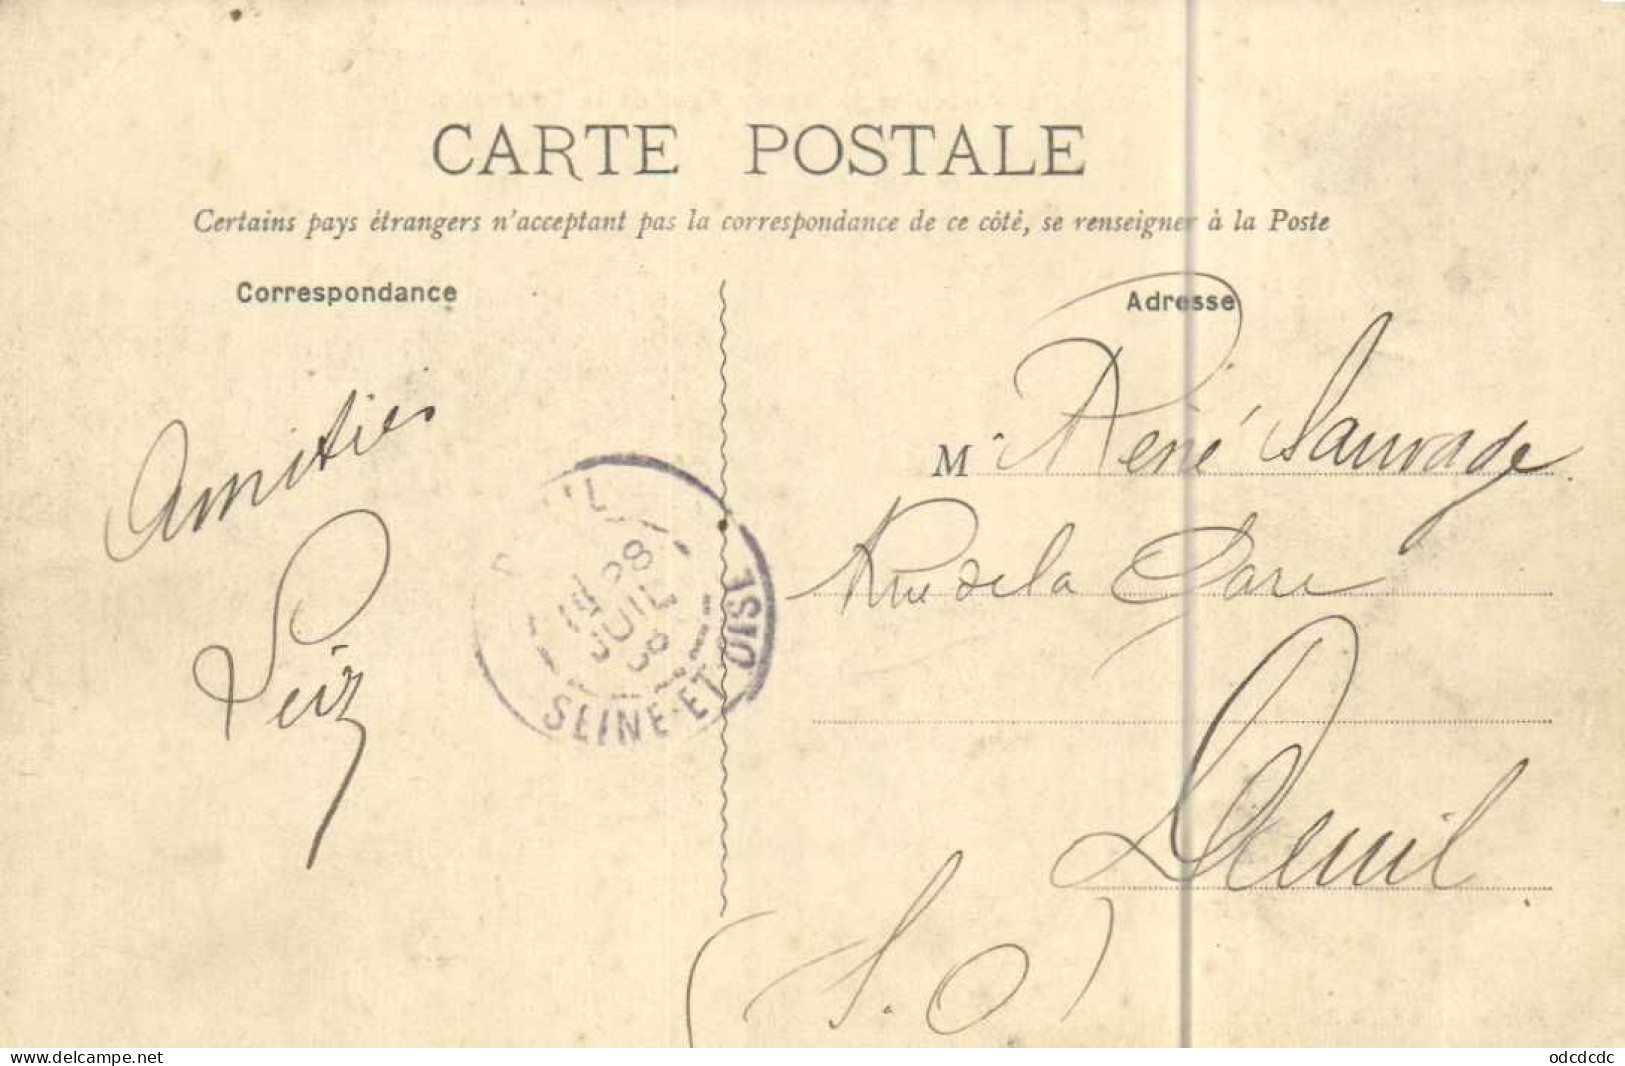 CARTE POSTALE
Certains pays étrangers n'acceptant pas la correspondance de ce côté, se renseigner à la Poste
Correspondance
Adresse
Amitiés
M René Sauvage
Rue de la Gare
Deuil
(S. O)
SEINE-ET-OISE
www.delcampe.net
odcdcdc